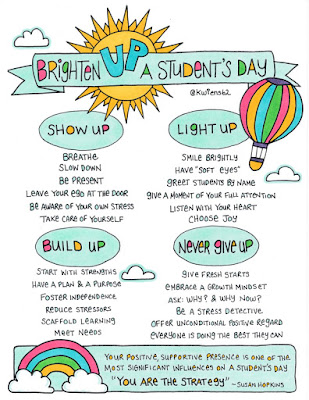 BRIGHTEN UP A STUDENT'S DAY
@kwiens62
SHOW UP
BREATHE
SLOW DOWN
BE PRESENT
LEAVE YOUR EGO AT THE DOOR
BE AWARE OF YOUR OWN STRESS
TAKE CARE OF YOURSELF
LIGHT UP
SMILE BRIGHTLY
HAVE "SOFT EYES"
GREET STUDENTS BY NAME
GIVE A MOMENT OF YOUR FULL ATTENTION
LISTEN WITH YOUR HEART
CHOOSE JOY
BUILD UP
START WITH STRENGTHS
HAVE A PLAN & A PURPOSE
FOSTER INDEPENDENCE
REDUCE STRESSORS
SCAFFOLD LEARNING
MEET NEEDS
NEVER GIVE UP
GIVE FRESH STARTS
EMBRACE A GROWTH MINDSET
ASK: WHY? & WHY NOW?
BE A STRESS DETECTIVE
OFFER UNCONDITIONAL POSITIVE REGARD
EVERYONE IS DOING THE BEST THEY CAN
YOUR POSITIVE, SUPPORTIVE PRESENCE IS ONE OF THE
MOST SIGNIFICANT INFLUENCES ON A STUDENT'S DAY
"YOU ARE THE STRATEGY" ~SUSAN HOPKINS